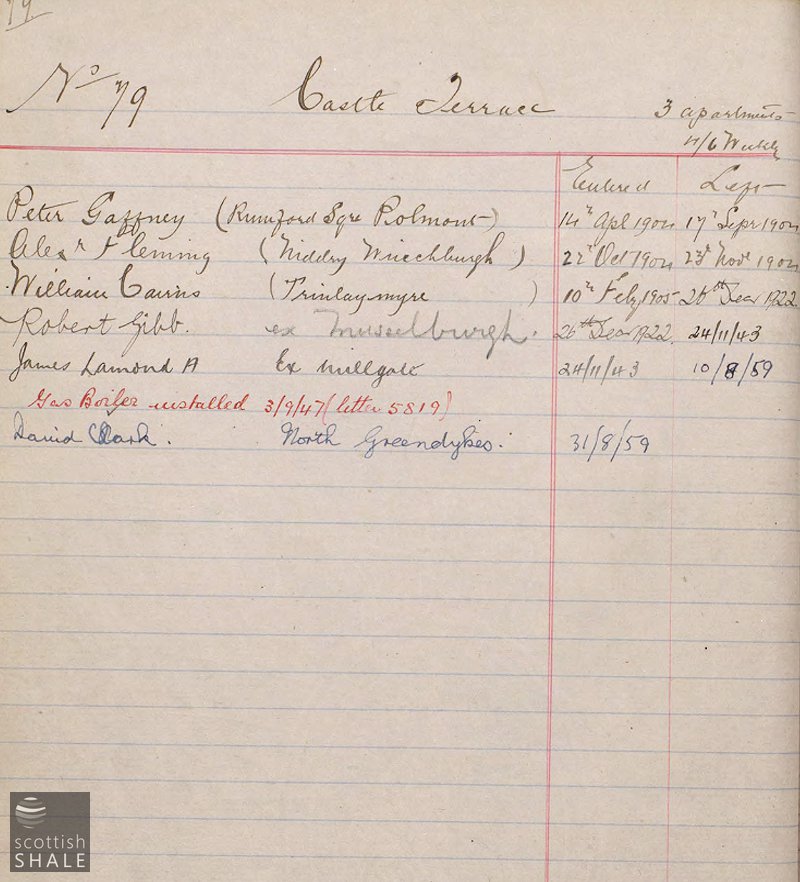 79
No 79 Castle Terrace 3 apartments
4/6 Weekly
Entered Left
Peter Gaffney (Rumford Sqre Polmont) 14th Apl 1904 17th Sepr 1904
Alexr Fleming (Niddry Winchburgh) 22nd Oct 1904 23rd Novr 1904
William Cairns (Trinlaymyre) 10th Feby 1905 26th Decr 1922
Robert Gibb. ex Musselburgh. 26th Decr 1922. 24/11/43
James Lamond A Ex Millgate 24/11/43 10/8/59
Gas Boiler installed 3/9/47 (letter 5819)
David Clark. North Greendykes. 31/8/59
scottish
SHALE